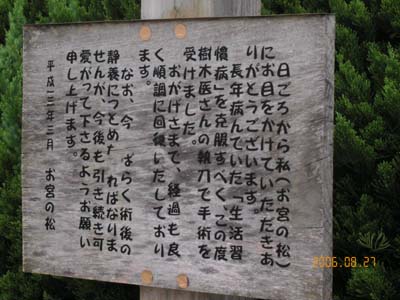 日ごろから私(お宮の松)
にお目をかけていただきあ
りがとうございます。
長年病んでいた「生活習
慣病」を克服すべく、この度
樹木医さんの執刀で手術を
受けました。
おかげさまで、経過も良
く順調に回復いたしており
ます。
なお、今 ばらく術後の
静養につとめ ればなりま
せんが、今後も引き続き可
愛がって下さるようお願い
申し上げます。
平成一三年三月 お宮の松
2006.08.27